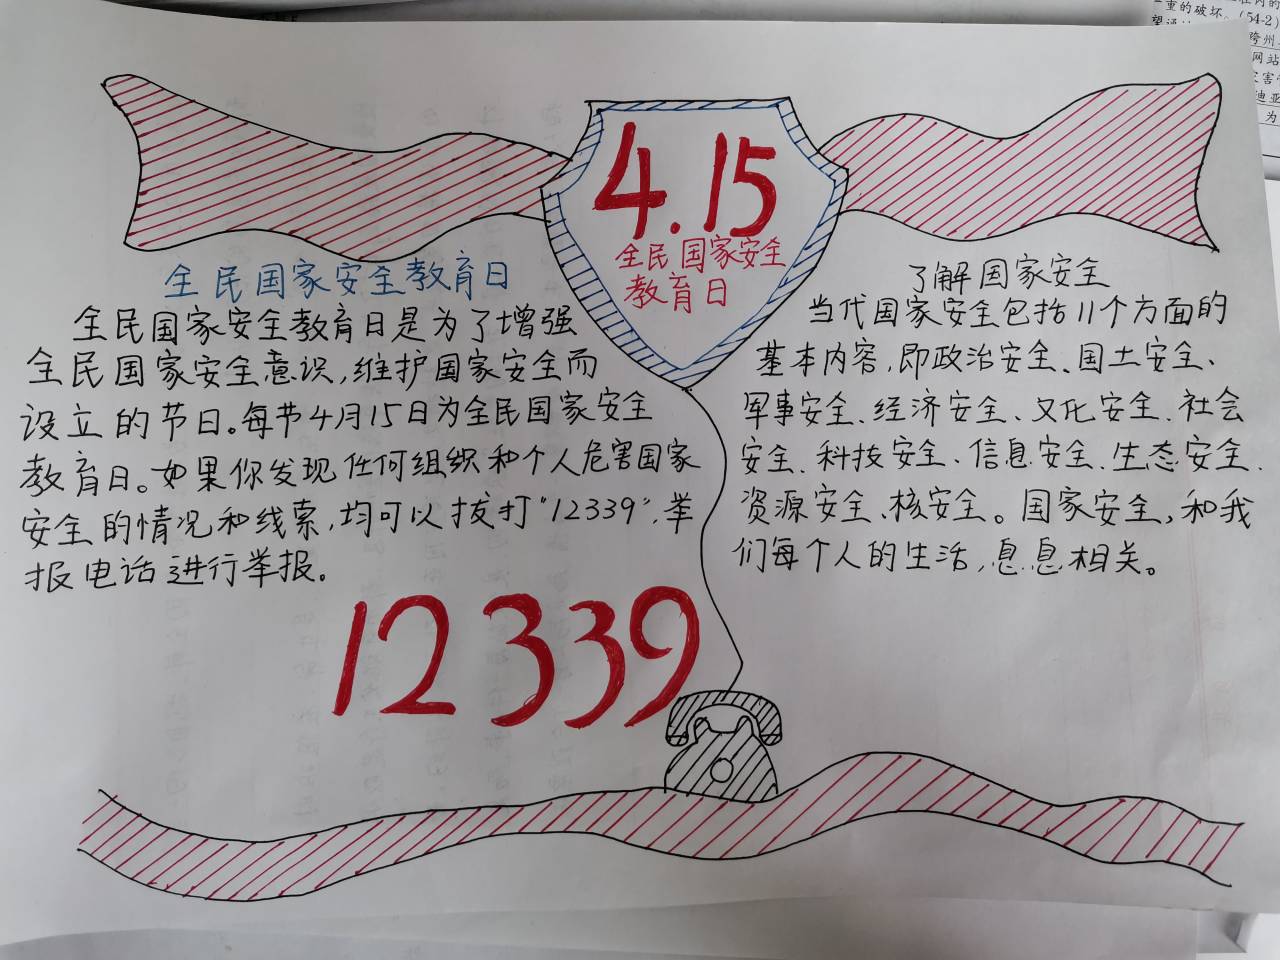 4.15
全民国家安全
教育日
全民国家安全教育日
全民国家安全教育日是为了增强
全民国家安全意识,维护国家安全而
设立的节日。每节4月15日为全民国家安全
教育日。如果你发现任何组织和个人危害国家
安全的情况和线索,均可以拔打"12339",举
报电话进行举报。
12339
了解国家安全
当代国家安全包括11个方面的
基本内容,即政治安全、国土安全、
军事安全、经济安全、文化安全、社会
安全、科技安全、信息安全、生态安全、
资源安全、核安全。国家安全,和我
们每个人的生活,息息相关。
重的破坏。(54-2)
跨州
网站
迪亚
为